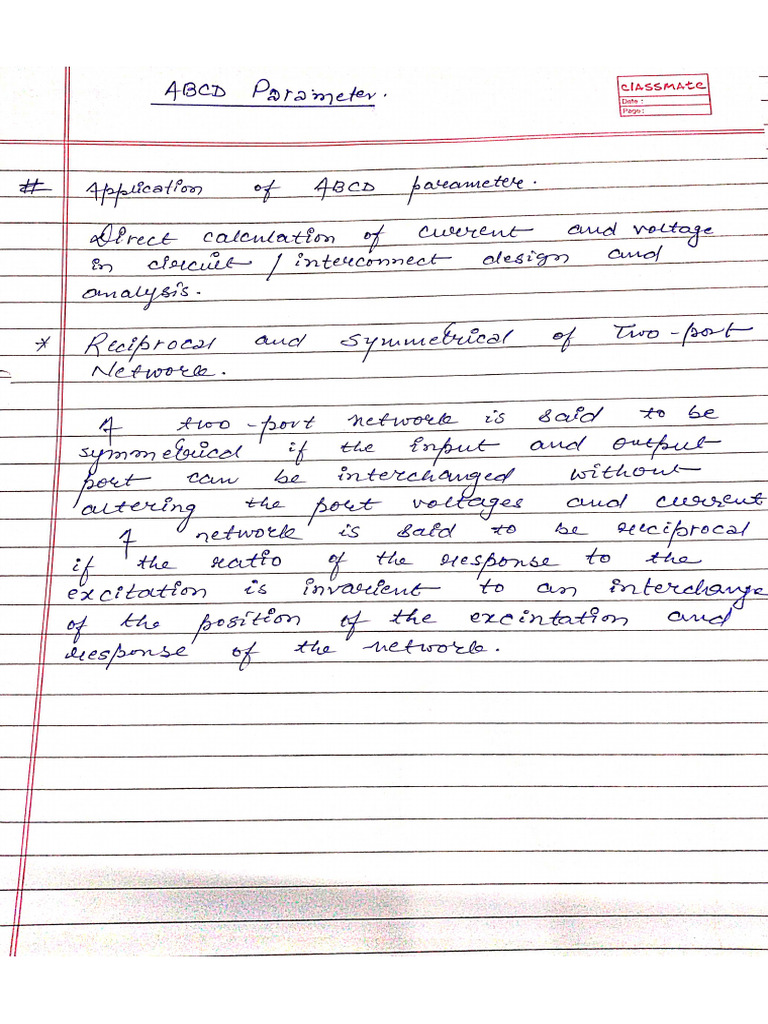 ABCD Parameter.
CLASSMATE
Date :
Page :
# Application of ABCD parameter.
Direct calculation of current and voltage
in circuit / interconnect design and
analysis.
* Reciprocal and symmetrical of Two-port
Network.
A two-port network is said to be
symmetrical if the input and output
port can be interchanged without
altering the port voltages and current
A network is said to be reciprocal
if the ratio of the response to the
excitation is invarient to an interchange
of the position of the excintation and
response of the network.